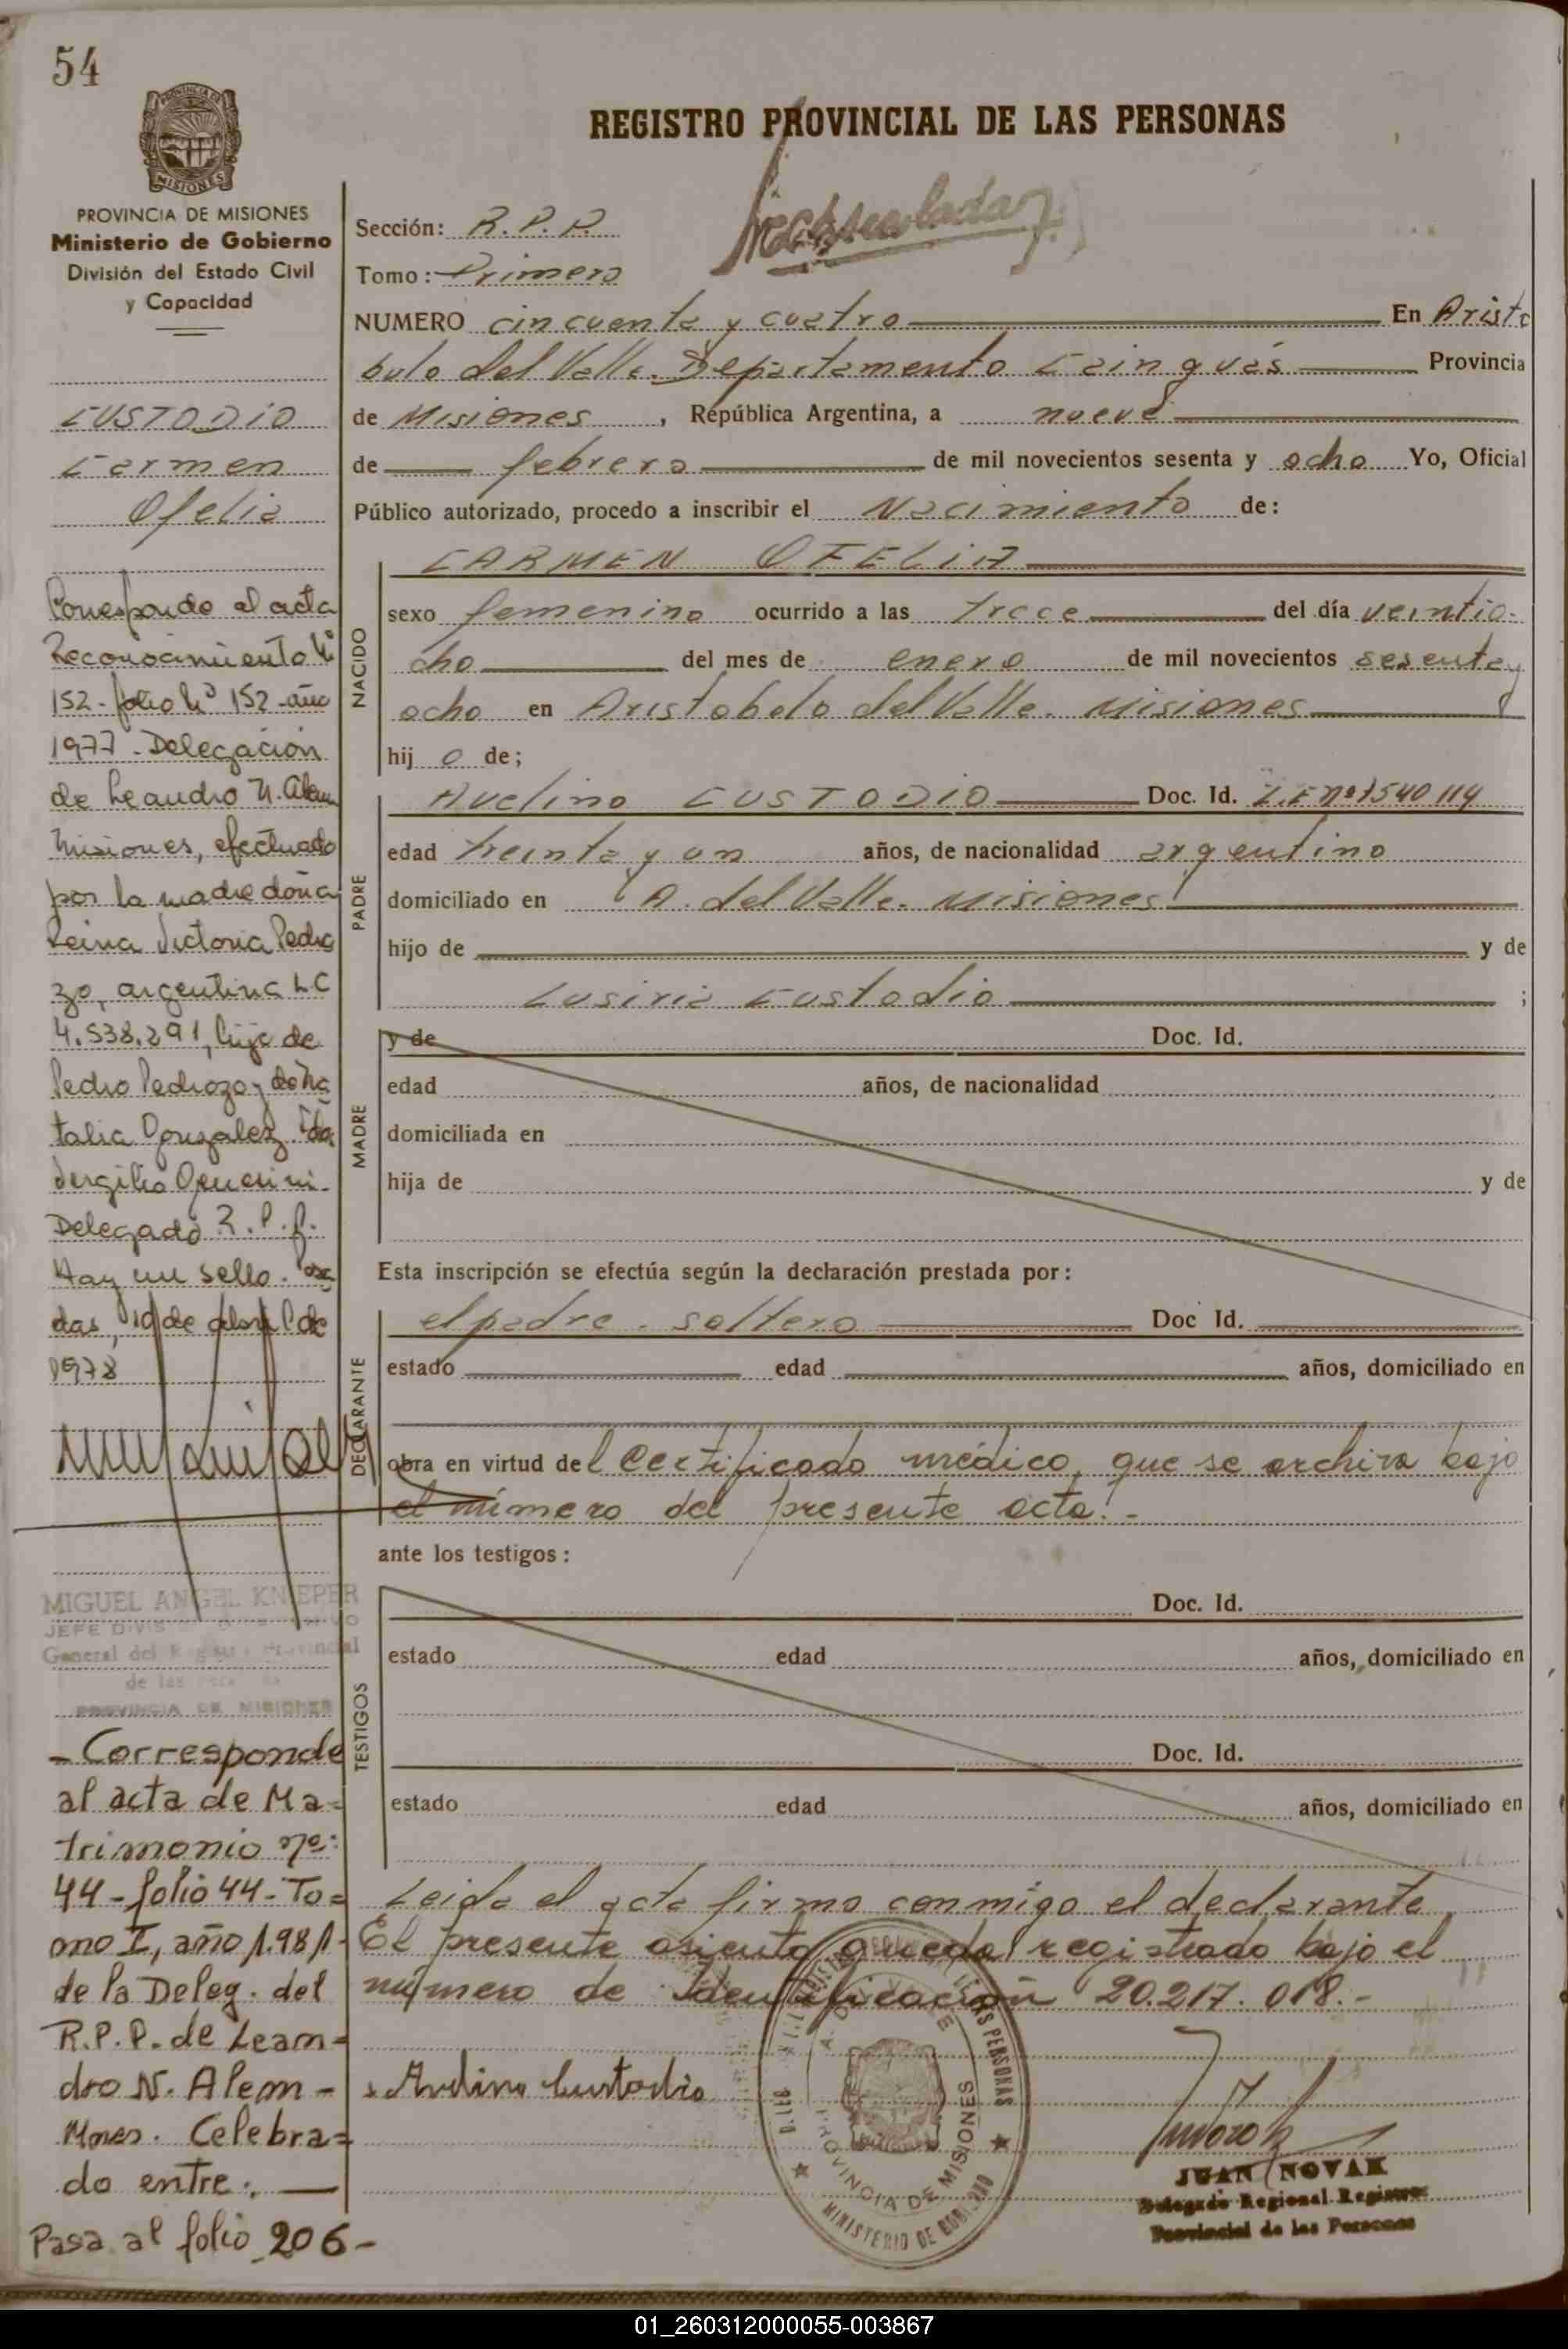 54
REGISTRO PROVINCIAL DE LAS PERSONAS
MISIONES
PROVINCIA DE MISIONES
Ministerio de Gobierno
División del Estado Civil
y Capacidad
CUSTODIO
Carmen
Ofelia
Corresponde al acta
Reconocimiento Nº
152 - folio Nº 152 - año
1977 - Delegación
de Leandro N. Alem
Misiones, efectuado
por la madre doña
Reina Victoria Pedro
zo, argentina LC
4.538.291, hija de
Pedro Pedrozo y de Na
talia Gonzalez
Vergilio
Delegado R.P.P.
Hay un sello. Posa
das, 10 de abril de
1978
MIGUEL ANGEL KNIEPER
JEFE
General del Registro Provincial
de las
PROVINCIA DE MISIONES
- Corresponde
al acta de Ma=
trimonio nº:
44 - folio 44 - To=
mo I, año 1.981-
de la Deleg. del
R.P.P. de Lean=
dro N. Alem -
Mnes. Celebra=
do entre: —
Pasa al folio 206 -
Sección: R.P.P.
Tomo: Primero
NUMERO cincuenta y cuatro En Aristo
bulo del Valle. Departamento Cainguás Provincia
de Misiones, República Argentina, a nueve
de febrero de mil novecientos sesenta y ocho Yo, Oficial
Público autorizado, procedo a inscribir el Nacimiento de:
NACIDO
CARMEN OFELIA
sexo femenino ocurrido a las trece del día veintio-
cho del mes de enero de mil novecientos sesenta y
ocho en Aristobolo del Valle. Misiones
hij o de;
PADRE
Avelino CUSTODIO Doc. Id. L.E nº 7540114
edad treinta y un años, de nacionalidad argentino
domiciliado en A. del Valle. Misiones
hijo de y de
Lusiria Custodio ;
MADRE
y de Doc. Id.
edad años, de nacionalidad
domiciliada en
hija de y de
Esta inscripción se efectúa según la declaración prestada por:
DECLARANTE
el padre. soltero Doc Id.
estado edad años, domiciliado en
obra en virtud del Certificado médico, que se archiva bajo
el número del presente acta.-
ante los testigos:
TESTIGOS
Doc. Id.
estado edad años, domiciliado en
Doc. Id.
estado edad años, domiciliado en
Leida el acta firmo conmigo el declarante.
El presente asiento queda registrado bajo el
número de Identificación 20.217.018.-
Avelino Custodio
PROVINCIA DE MISIONES
MINISTERIO DE GOBIERNO
JUAN NOVAK
Delegado Regional Registro
Provincial de las Personas
01_260312000055-003867